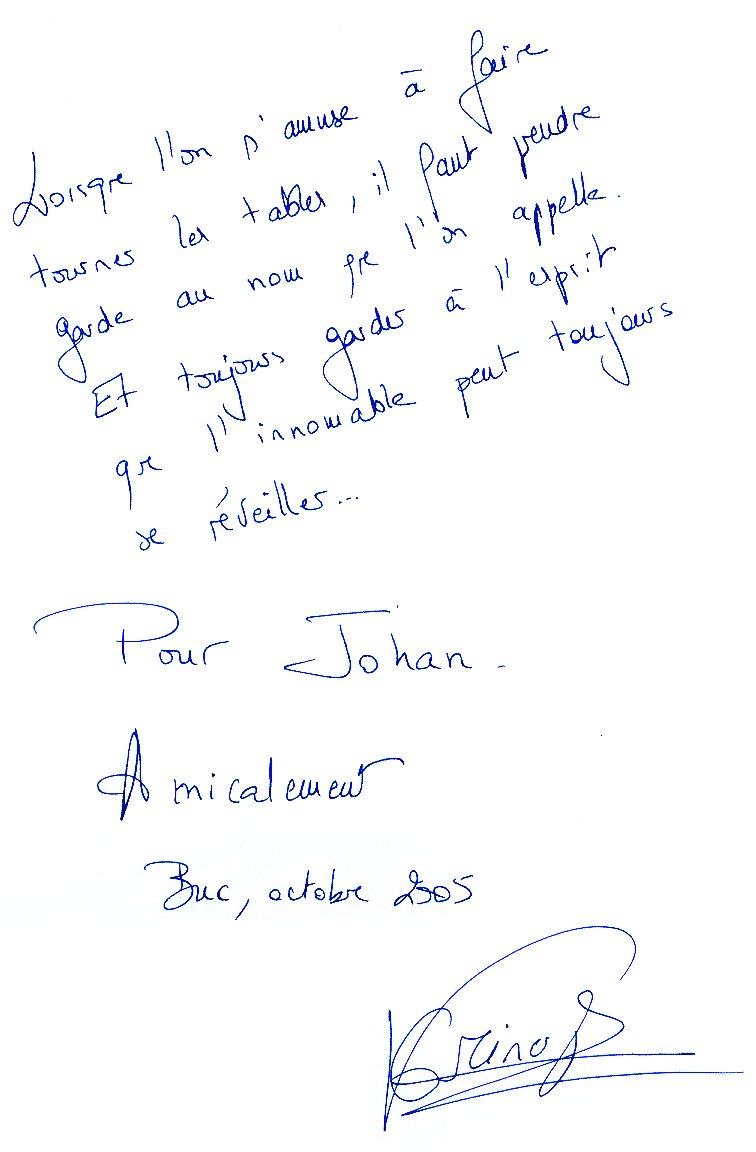 Lorsque l'on s'amuse à faire
tourner les tables, il faut prendre
garde au nom que l'on appelle.
Et toujours garder à l'esprit
que l'innomable peut toujours
se réveiller...
Pour Johan.
Amicalement
Buc, octobre 2005